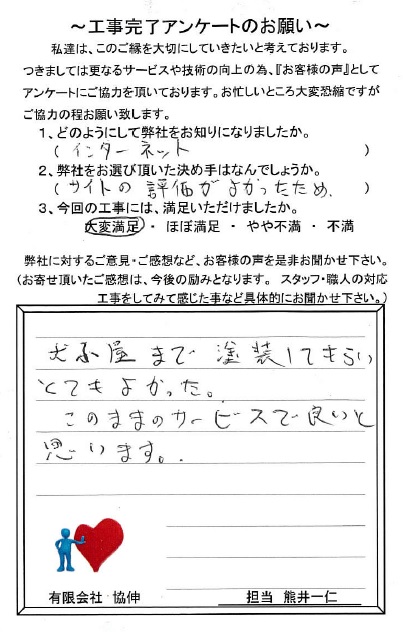 ～工事完了アンケートのお願い～
私達は、このご縁を大切にしていきたいと考えております。
つきましては更なるサービスや技術の向上の為、『お客様の声』として
アンケートにご協力を頂いております。お忙しいところ大変恐縮ですが
ご協力の程お願い致します。
1、どのようにして弊社をお知りになりましたか。
(インターネット)
2、弊社をお選び頂いた決め手はなんでしょうか。
(サイトの評価がよかったため.)
3、今回の工事には、満足いただけましたか。
大変満足・ほぼ満足・やや不満・不満
弊社に対するご意見・ご感想など、お客様の声を是非お聞かせ下さい。
(お寄せ頂いたご感想は、今後の励みとなります。 スタッフ・職人の対応
工事をしてみて感じた事など具体的にお聞かせ下さい。)
犬小屋まで塗装してもらい
とてもよかった。
このままのサービスで良いと
思います。
有限会社 協伸
担当 熊井一仁